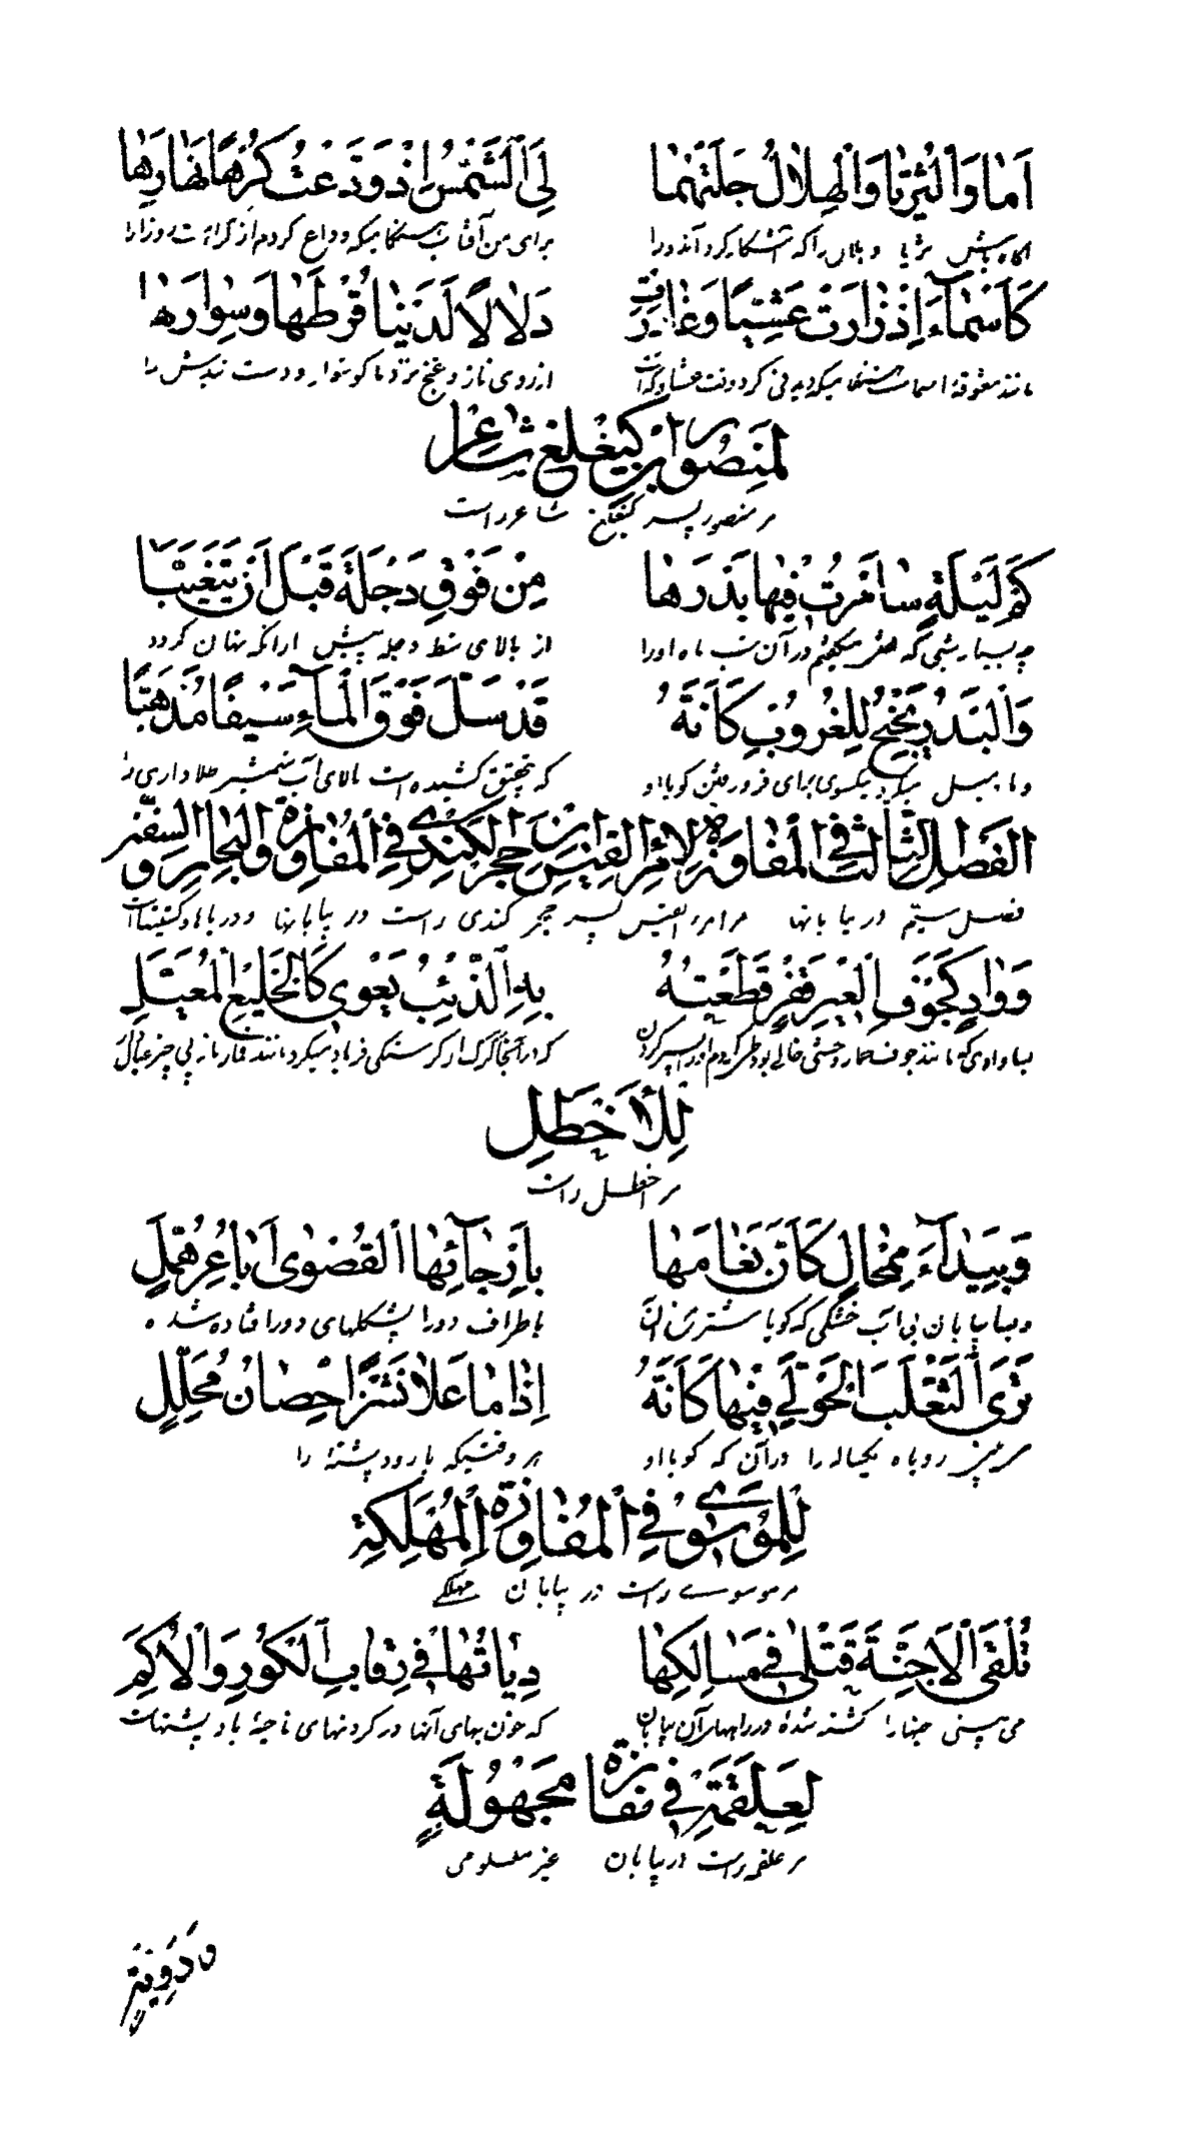 اَمَا وَالثُّرَيَّا وَالْهِلَالُ جَلَتْهُمَا لِيَ الشَّمْسُ اِذْ وَدَّعَتْ كُرْهًا نَهَارَهَا
برای من آفتاب هنگامیکه وداع کردم از کراهت روز را
كَاَسْمَآءَ اِذْ زَارَتْ عَشِيًّا وَغَادَرَتْ دَلَالًا لَدَيْنَا قُرْطَهَا وَسِوَارَهَا
مانند معشوقهٔ اسماست هنگامیکه دیدنی کرد وقت عشا از روی ناز و غنج نزد ما گوشوار و دست بندش را
لِمَنْصُورِ ابْنِ كَيَغْلَغَ شَاعِر
مر منصور پسر کیغلغ شاعر راست
كَمْ لَيْلَةٍ سَامَرْتُ فِيهَا بَدْرَهَا مِنْ فَوْقِ دَجْلَةَ قَبْلَ اَنْ يَتَغَيَّبَا
چه بسیار شبی که در آن شب ماه او را از بالای شط دجله پیش از آنکه نهان گردد
وَالْبَدْرُ يَجْنَحُ لِلْغُرُوبِ كَاَنَّهُ قَدْ سَلَّ فَوْقَ الْمَآءِ سَيْفًا مُذْهَبًا
و ماه میل میکرد بیکسوی برای فرو رفتن گویا او که بتحقیق کشیده است بالای آب شمشیر طلا داری را
اَلْفَصْلُ الثَّالِثُ فِي الْمَفَاوِزِ لِامْرِئِ الْقَيْسِ ابْنِ حُجْرٍ الْكِنْدِيِّ فِي الْمَفَاوِزِ وَالْبِحَارِ وَالسُّفُنِ
فصل سیّم در بیابانها مر امرء القیس پسر حجر کندی راست در بیابانها و دریاها و کشتیهاست
وَوَادٍ كَجَوْفِ الْعَيْرِ قَفْرٍ قَطَعْتُهُ بِهِ الذِّئْبُ يَعْوِي كَالْخَلِيعِ الْمُعَيَّلِ
بسا وادی که مانند جوف حمار وحشی خالی بود که در آنجا گرگ از گرسنگی فریاد میکرد مانند قمارباز بی چیز عیال
لِلْاَخْطَلِ
مر اخطل راست
وَبَيْدَآءَ مِمْحَالٍ كَاَنَّ نَعَامَهَا بِاَرْجَائِهَا الْقُصْوَى اَبَاعِرُ هُمَّلِ
و بسا بیابان بی آب خشکی که گویا شتر مرغان باطراف دورا دور افتاده شده
تَرَى الثَّعْلَبَ الْحَوْلِيَّ فِيهَا كَاَنَّهُ اِذَا مَا عَلَا نَشْزًا حِصَانٌ مُجَلَّلُ
می بینی روباه یکساله را در آن که گویا او هر وقتیکه بالا رود پشتهٔ را
لِلْمُوسَوِيِّ فِي الْمَفَازَةِ الْمُهْلِكَةِ
مر موسوی راست در بیابان مهلکه
تَلْقَى الْاَجِنَّةَ قَتْلَى فِي مَسَالِكِهَا دِيَاتُهَا فِي رِقَابِ الْكُورِ وَالْاَكَمِ
می بینی جنها را کشته شدهٔ در راههای آن بیابان که خون بهای آنها در گردنهای ناحیهٔ با و پشتهاست
لِعَلْقَمَةَ فِي مَفَازَةٍ مَجْهُولَةٍ
مر علقمه راست در بیابان غیر معلومی
وَدَوِيَّةٍ